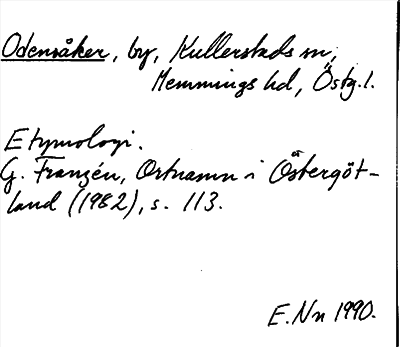 Odensåker, by, Kullerstads sn,
Memmings hd, Östg.l.
Etymologi.
G. Franzén, Ortnamn i Östergöt-
land (1982), s. 113.
E.Nn 1990.